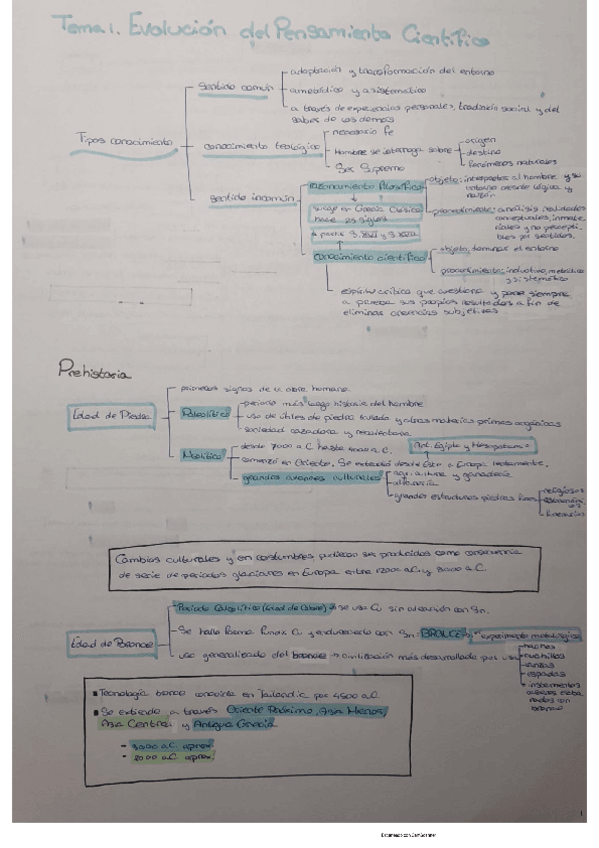 Tema 1. Evolución del Pensamiento Científico
Tipos conocimiento
Sentido común
adaptación y transformación del entorno
ametódico y asistemático
a través de experiencias personales, tradición social y del
saber de los demás
Sentido incomún
conocimiento teológico
necesario fe
Hombre se interroga sobre
origen
destino
fenómenos naturales
Ser Supremo
razonamiento filosófico
surge en Grecia Clásica
hace 25 siglos
a partir
objeto: interpretar al hombre y su
entorno creando lógica y
razón
procedimiento: análisis realidades
conceptuales, inmate
riales y no percepti
bles por sentidos
conocimiento científico
objeto: dominar el entorno
procedimiento: inductivo, metódico
y sistemático
espíritu crítico que cuestiona y pone siempre
a prueba sus propios resultados a fin de
eliminar creencias subjetivas
Prehistoria
Edad de Piedra
primeros signos de obra humana
Paleolítico
periodo más largo historia del hombre
uso de útiles de piedra tallada y otras materias primas orgánicas
sociedad cazadora y recolectora
Neolítico
desde 7000 a.C. hasta 4000 a.C.
Ant. Egipto y Mesopotamia
comenzó en Oriente. Se extendió desde Este a Europa lentamente.
grandes avances culturales
agricultura y ganadería
alfarería
grandes estructuras piedras fines
religiosos
funerarios
Cambios culturales y en costumbres pudieron ser producidos como consecuencia
de serie de periodos glaciares en Europa entre 12000 a.C. y 8000 a.C.
Edad de Bronce
Periodo Calcolítico (Edad de Cobre) → se usa Cu sin aleación con Sn.
Se halla forma fundir Cu y endurecerlo con Sn: BRONCE → 1er experimento metalúrgico
uso generalizado del bronce → civilización más desarrollada por uso
hachas
cuchillos
lanzas
espadas
instrumentos
rados con
bronce
Tecnología bronce conocida en Tailandia por 4500 a.C.
Se extiende a través Oriente Próximo, Asia Menor,
Asia Central y Antigua Grecia
- 3000 a.C. aprox.
- 2000 a.C. aprox.
1
Escaneado con CamScanner